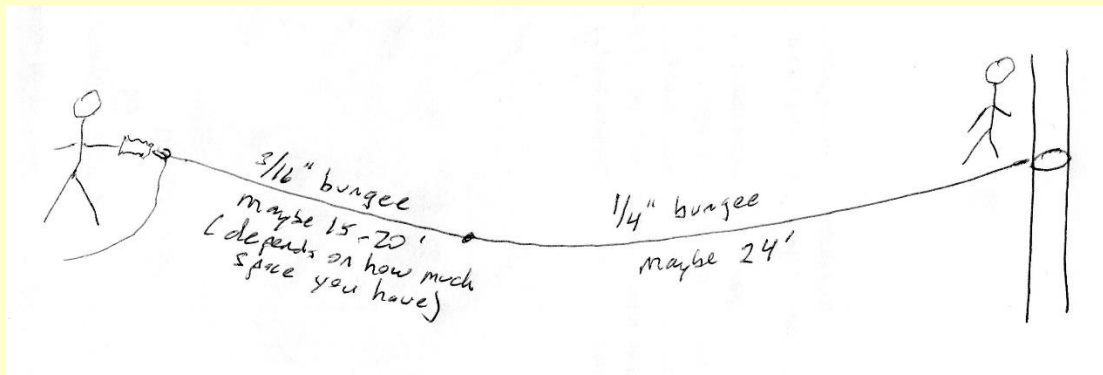 3/16" bungee
maybe 15-20'
(depends on how much
space you have)
1/4" bungee
maybe 24'